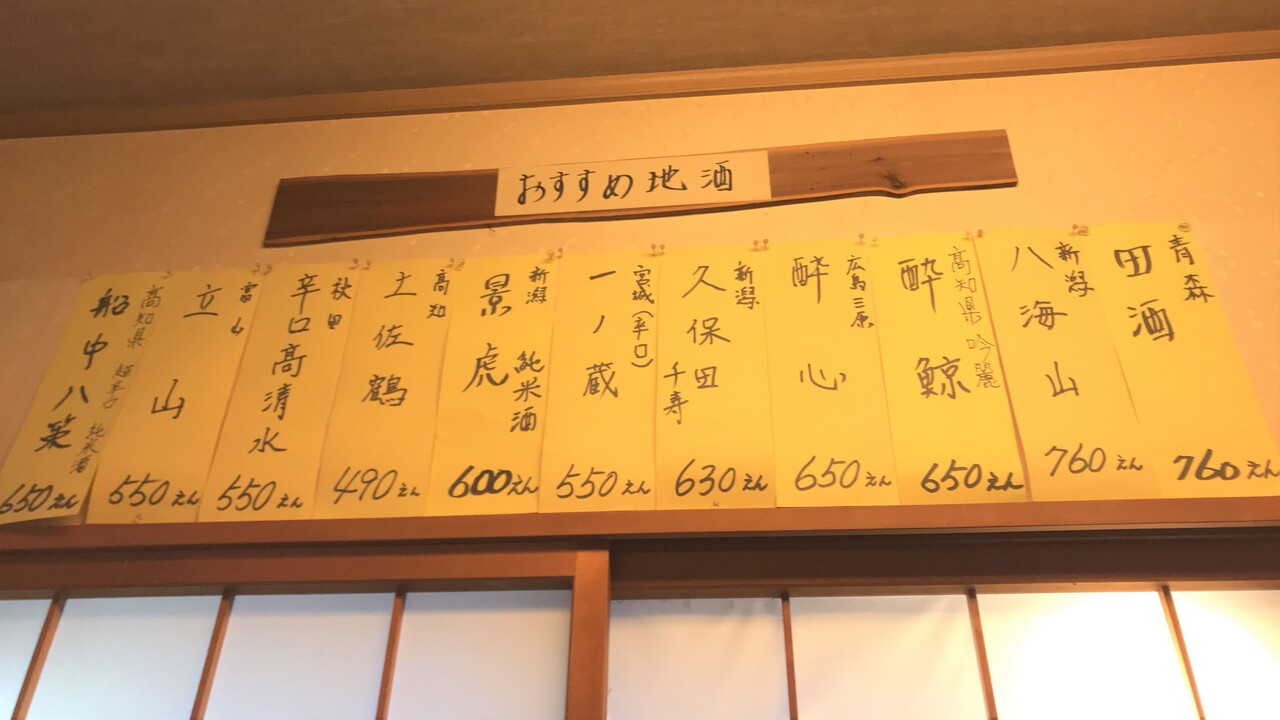 おすすめ地酒
青森
田酒
760えん
新潟
八海山
760えん
高知県 吟麗
酔鯨
650えん
広島三原
酔心
650えん
新潟
久保田
千寿
630えん
宮城(辛口)
一ノ蔵
550えん
新潟 純米酒
景虎
600えん
高知
土佐鶴
490えん
秋田
辛口高清水
550えん
富山
立山
550えん
高知県 超辛口 純米酒
船中八策
650えん